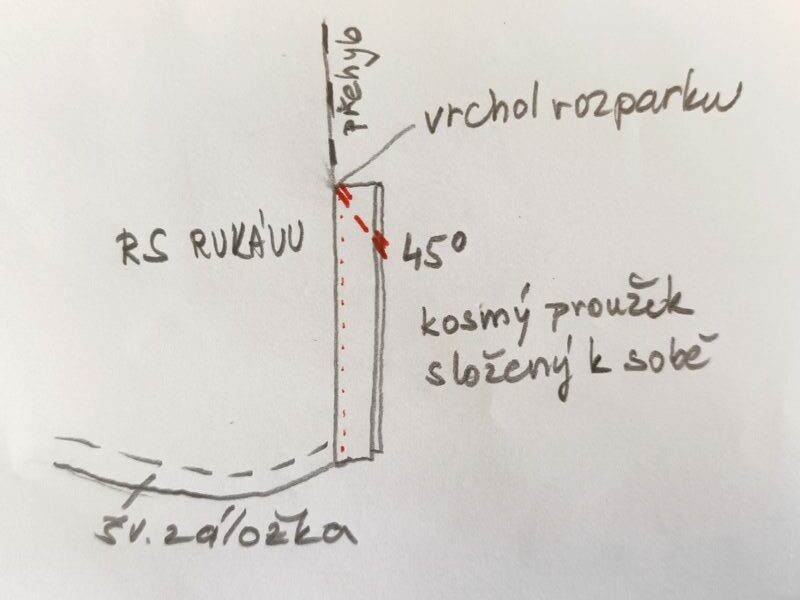 přehyb
vrchol rozparku
RS RUKÁVU
45°
kosmý proužek
složený k sobě
šv. záložka